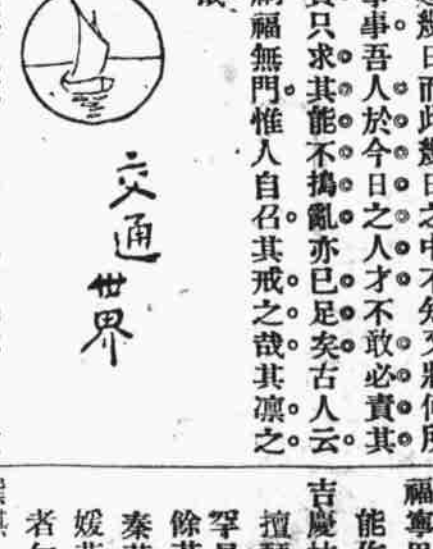 幾日而此幾日之中不知又將何所
事吾人於今日之人才不敢必責其
只求其能不搗亂亦已足矣古人云。
福無門。惟人自召。其戒之哉。其凛之。
交通世界
福寧
能
吉慶
擅
罕
餘
秦
媛
者